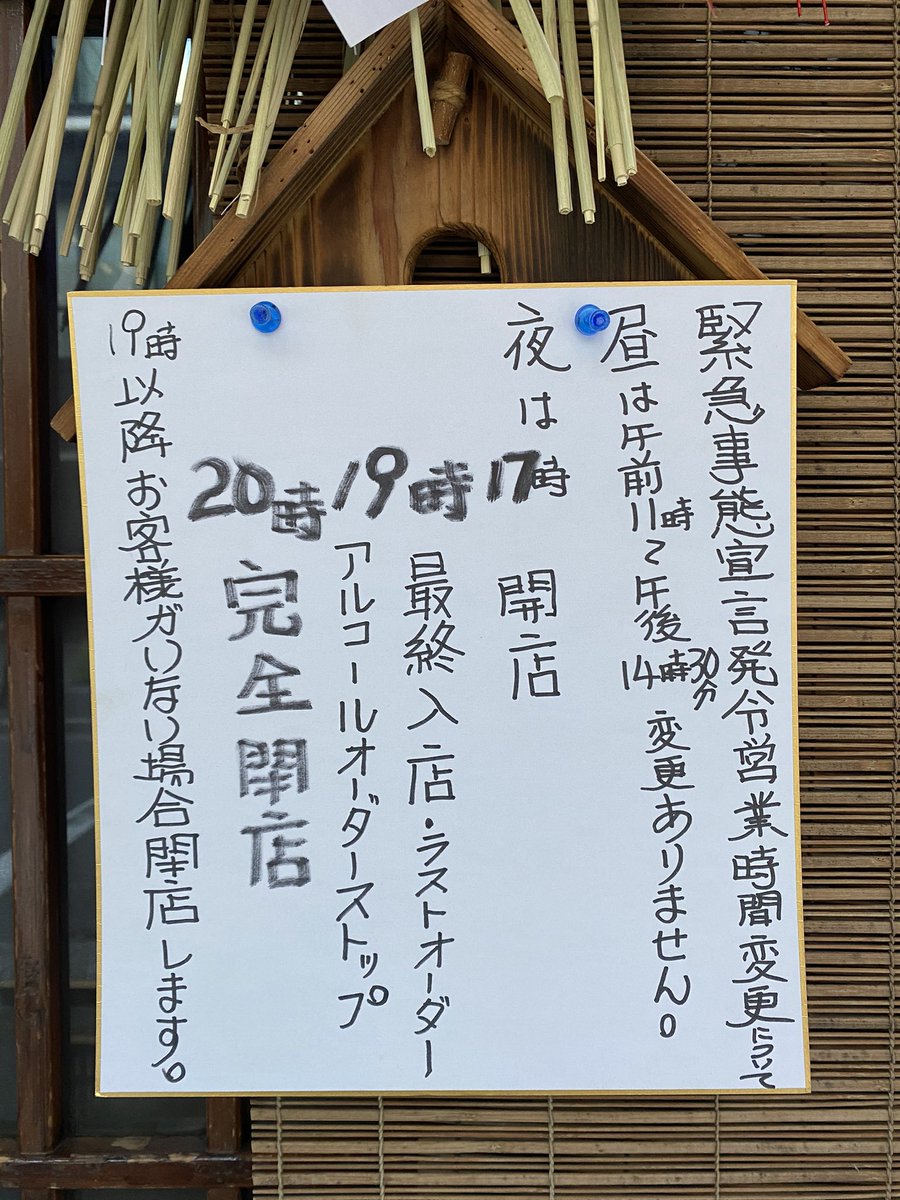 緊急事態宣言発令営業時間変更について
昼は午前11時〜午後14時30分 変更ありません。
夜は17時 開店
19時 最終入店・ラストオーダー
アルコールオーダーストップ
20時 完全閉店
19時以降お客様がいない場合閉店します。